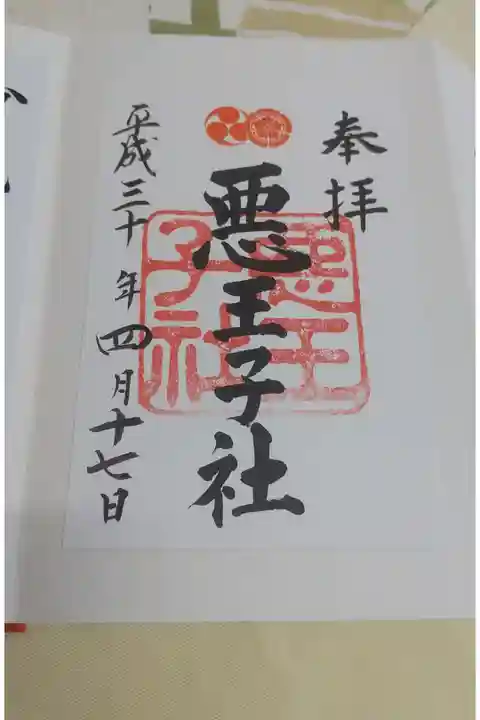 奉拝
悪王子社
悪王
子社
平成三十年四月十七日